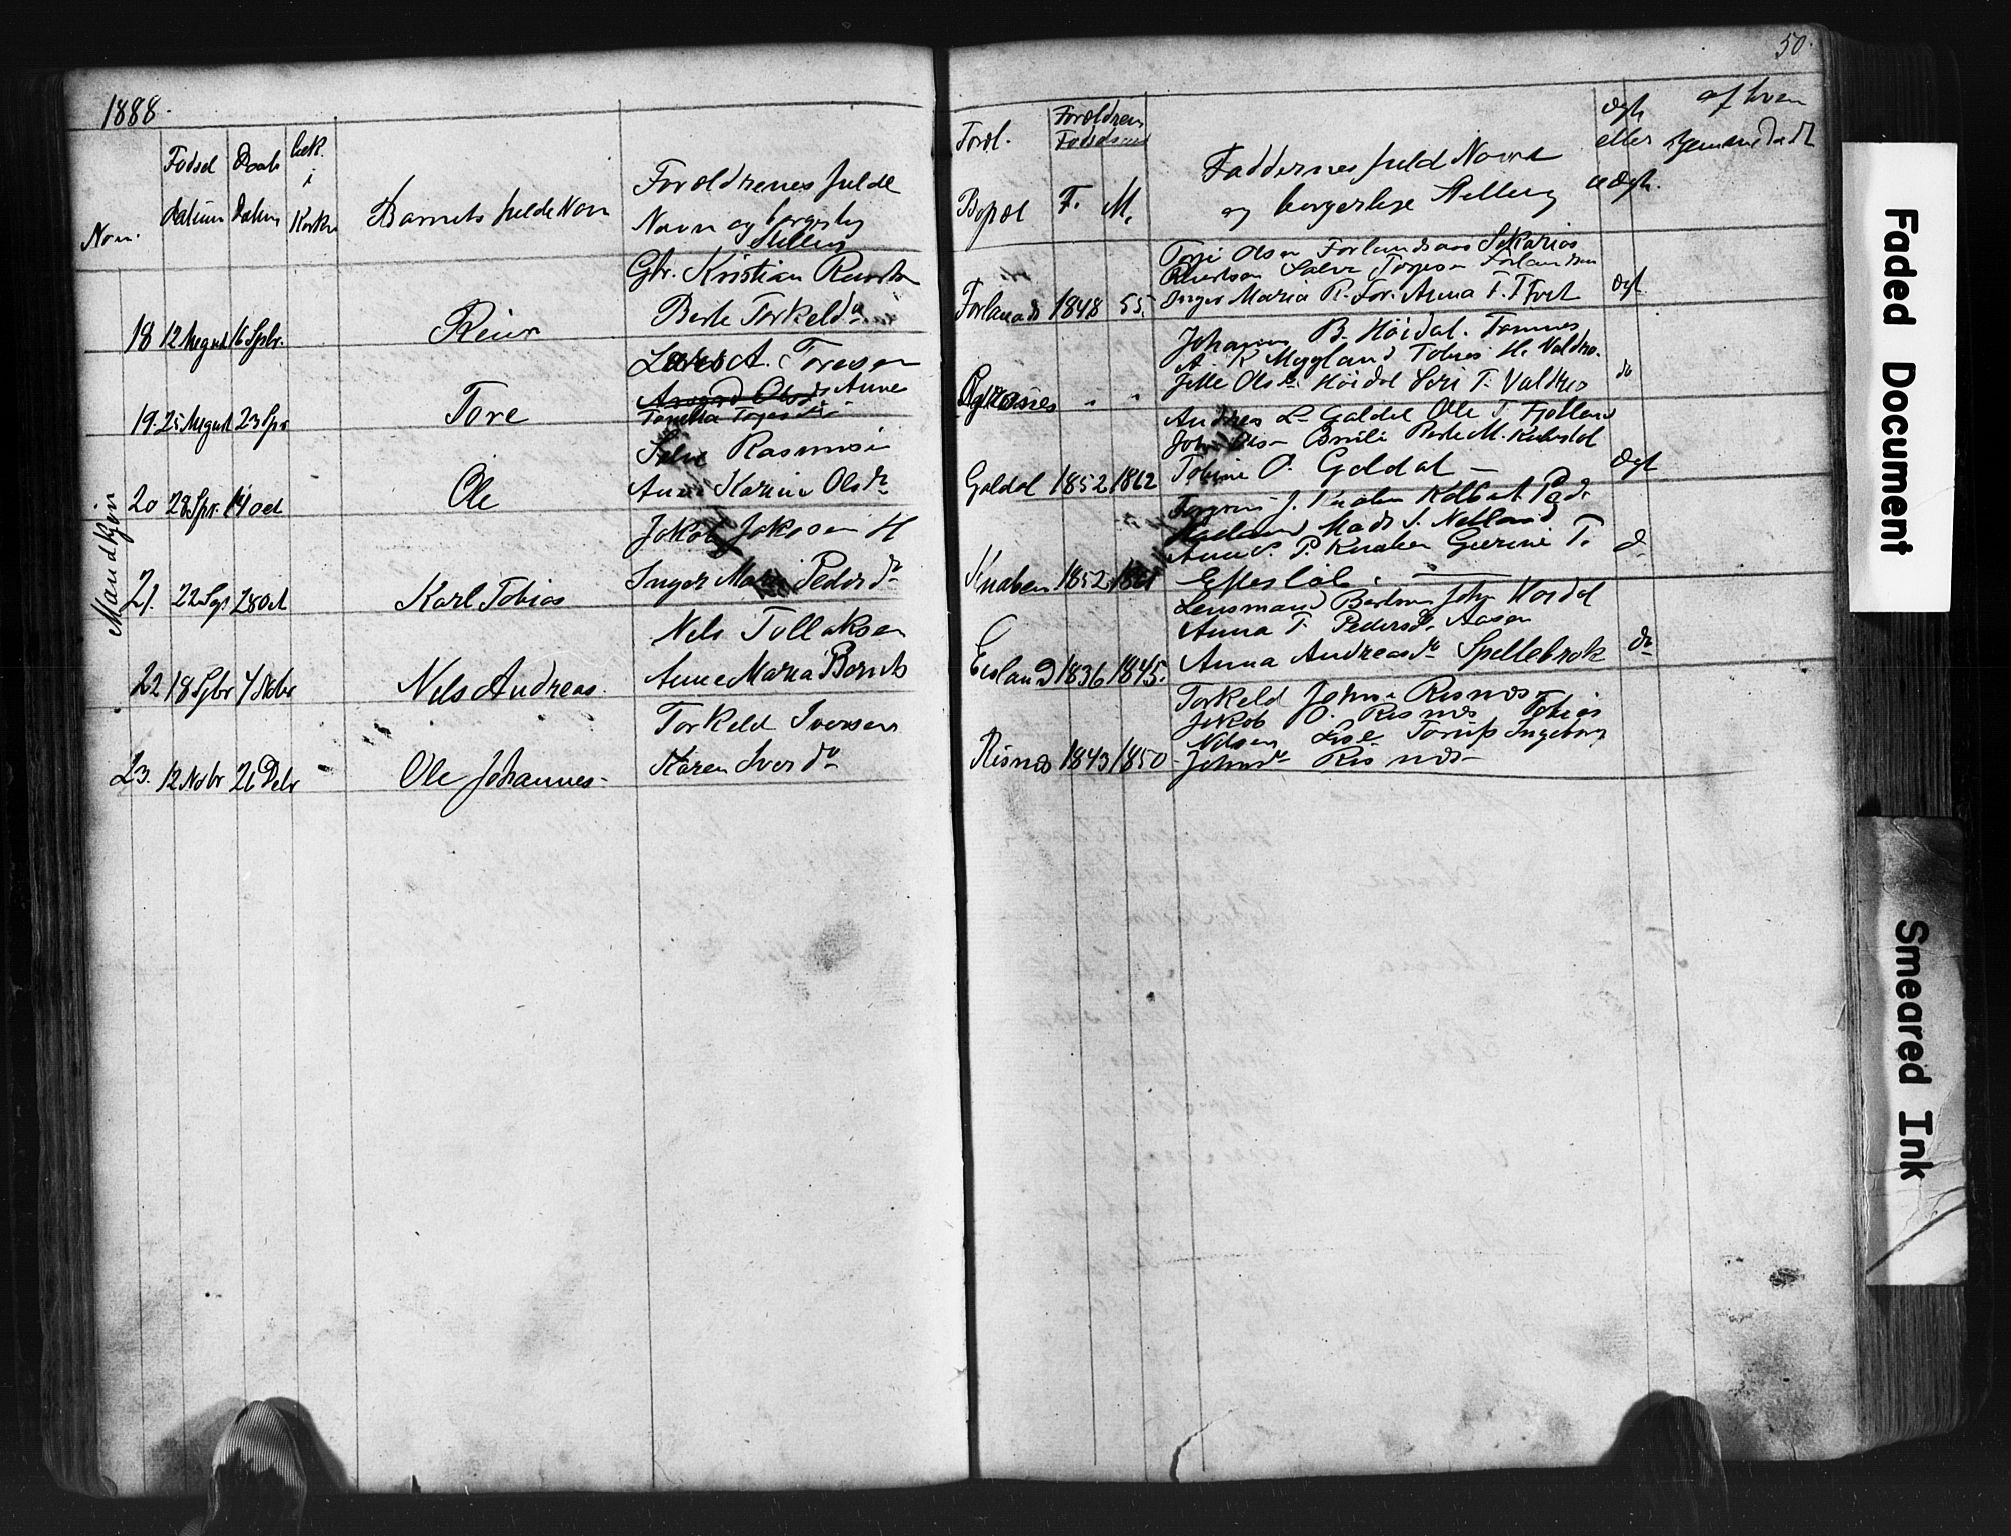 1888.
50.
Nom.
Fødsel
datum
Daab
datum
bek.
i
Kirken
Barnets fulde Navn
Forældrenes fulde
Navn og borgerlig
Stilling
Foræl.
Bopæl
Forældrenes
Fødselsaar
F. M.
Faddernes fuld Navne
og borgerlige Stilling
ægte
eller
uægt.
af hvem
hjemmedøbt
Mandkjøn
18 12 August 16 Spbr.
Reier
Gbr. Kristian Reiers
Berte Torkeldsd
Forland 1848 55.
Torje Olsen Forland Sakarias
Salve Torjesen
Inger Maria R. For. Anna T. T Forl
ægt
19. 25 August 23 Spr
Tore
Lars A. Toresen
Anne
Tonetta Torjesd
Johannes B. Höidal. Tønnes
A K Mygland Tobias H. Valdro.
Jelle Olsen Höidal Siri T. Valdres
do
20 28 Spr. 14 Oct
Ole
Salve Rasmus
Anne Karine Olsdr
Galdal 1852 1862
Andreas L Galdal Ole T Fjotland
John Olsen Berte M.
Tobine O. Galdal
ægt
21. 22 Sep 28 Oct
Karl Tobias
Jakob Jakobsen H
Inger Marie Pedersdr
Knaben 1852 1861
J. Knaben
Mads S. Netland
Anne P. Knaben Gurine T.
Efterløb.
do
22 18 Spbr 4 Nobr
Nels Andreas.
Nels Tollaksen
Anne Maria Berntsd
Eisland 1836 1845.
Lensmand Johs Hordal
Anna T. Pedersdr Aasen
Anna Andreasdr Spellebrok
do
23. 12 Nobr 26 Debr
Ole Johannes
Torkeld Iversen
Karen Iversdr
Risnes 1843 1850
Torkeld Johns Risnes
Jakob O. Risnes Tobias
Nilsen Lise Torup Ingeborg
Johnsdr Risnes
Faded Document
Smeared Ink